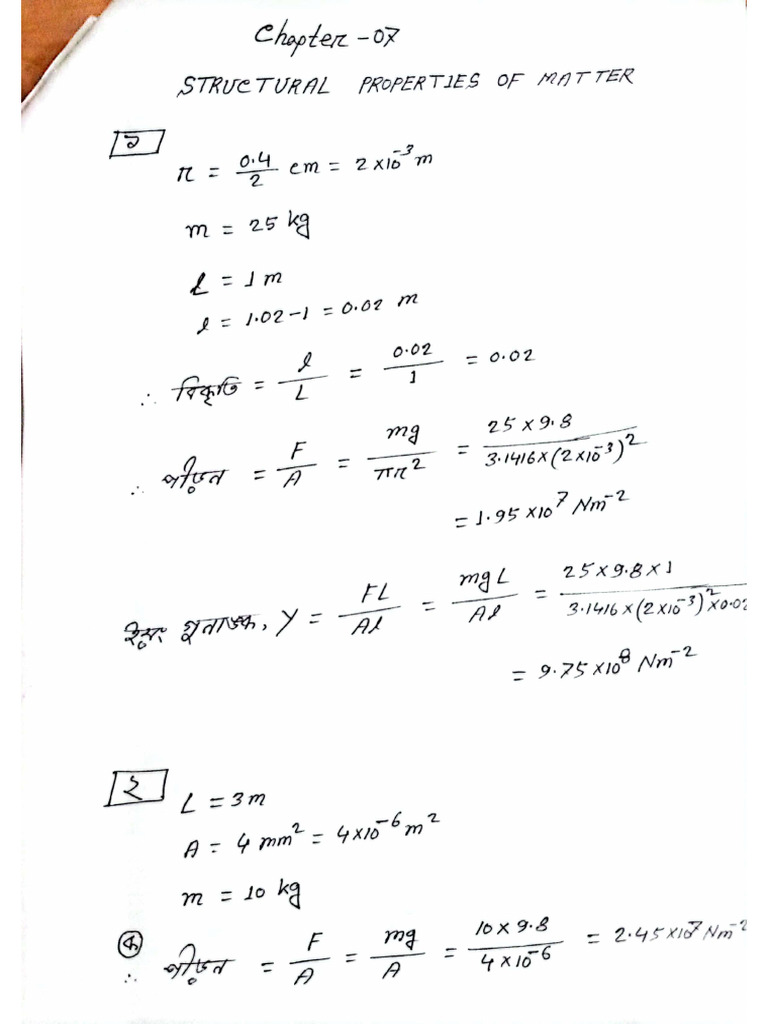 Chapter-07
STRUCTURAL PROPERTIES OF MATTER
১
r = 0.4/2 cm = 2×10⁻³ m
m = 25 kg
L = 1 m
l = 1.02-1 = 0.02 m
∴ বিকৃতি = l/L = 0.02/1 = 0.02
∴ পীড়ন = F/A = mg/πr² = 25×9.8/3.1416×(2×10⁻³)²
= 1.95×10⁷ Nm⁻²
ইয়ং গুনাঙ্ক, Y = FL/Al = mgL/Al = 25×9.8×1/3.1416×(2×10⁻³)²×0.02
= 9.75×10⁸ Nm⁻²
২
L = 3m
A = 4 mm² = 4×10⁻⁶ m²
m = 10 kg
ক
∴ পীড়ন = F/A = mg/A = 10×9.8/4×10⁻⁶ = 2.45×10⁷ Nm⁻²